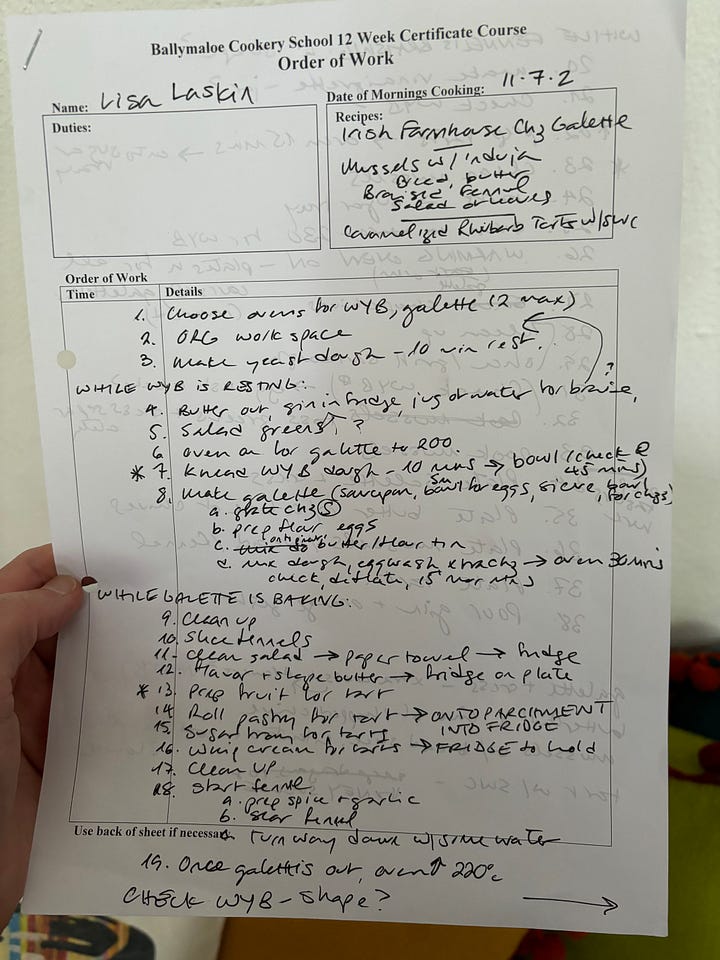 Ballymaloe Cookery School 12 Week Certificate Course
Order of Work
Name: Lisa Laskin
Date of Mornings Cooking: 11.7.2
Duties:
Recipes:
Irish Farmhouse Ch3 Galette
Mussels w/ 'nduja
Bread, butter
Braised Fennel
Salad of leaves
Caramelized Rhubarb Tarts w/ SWC
Order of Work
Time
Details
1. Choose ovens for WYB, galette (2 max)
2. ORG work space
3. Make yeast dough - 10 min rest.
WHILE WYB IS RESTING: ?
4. Butter out, gin in fridge, jug of water for braise,
5. Salad greens ?
6 oven on for galette to 200.
* 7. Knead WYB dough - 10 mins → bowl (check @ 45 mins)
8. Make galette (saucepan, sm bowl for eggs, sieve, bowl for ch3s)
a. grate ch3(s)
b. prep flour, eggs
c. butter/flour tin
d. mix dough, eggwash x trach3 → oven 30 mins
check, deflate, 15 mor mns
WHILE GALETTE IS BAKING:
9. Clean up
10. Slice fennels
11. Clean salad → paper towel → fridge
12. Flavor + shape butter → fridge on plate
* 13. Prep fruit for tart
14 Roll pastry for tart → ONTO PARCHMENT
INTO FRIDGE
15. Sugar tray for tarts
16. Whip cream for tarts → FRIDGE to hold
17. Clean UP
18. Start fennel
a. prep spice + garlic
b. sear fennel
Use back of sheet if necessary
Turn way down w/ some water
19. Once galette is out, oven ↑ 220°c
CHECK WYB - Shape? →